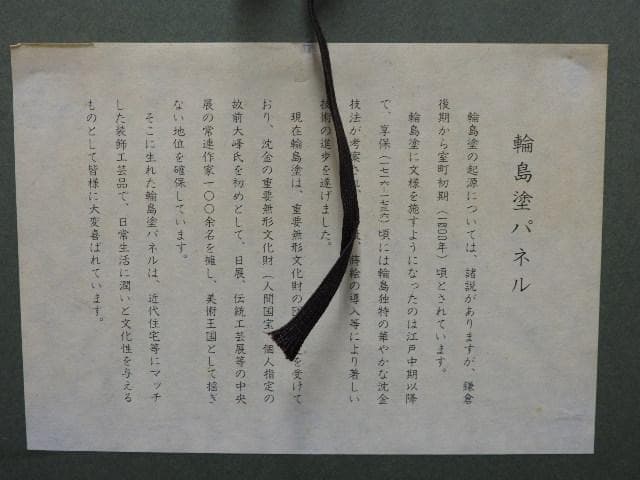 輪島塗パネル
輪島塗の起源については、諸説がありますが、鎌倉
後期から室町初期(一四〇〇年)頃とされています。
輪島塗に文様を施すようになったのは江戸中期以降
で、享保(一七一六-一七三六)頃には輪島独特の華やかな沈金
技法が考案され、蒔絵の導入等により著しい
技術の進歩を遂げました。
現在輪島塗は、重要無形文化財の を受けて
おり、沈金の重要無形文化財(人間国宝)個人指定の
故前大峰氏を初めとして、日展、伝統工芸展等の中央
展の常連作家一〇〇余名を擁し、美術王国として揺ぎ
ない地位を確保しています。
そこに生れた輪島塗パネルは、近代住宅等にマッチ
した装飾工芸品で、日常生活に潤いと文化性を与える
ものとして皆様に大変喜ばれています。